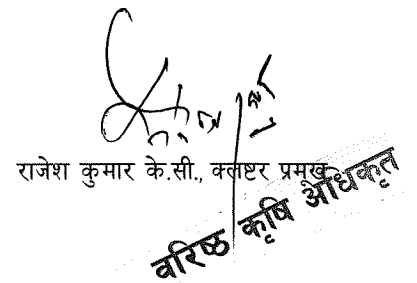 राजेश कुमार के.सी., क्लष्टर प्रमुख
वरिष्ठ कृषि अधिकृत